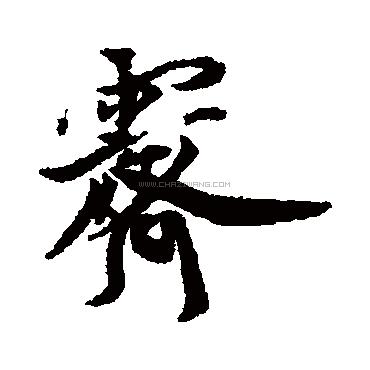 霽
WWW.CHAZIWANG.COM